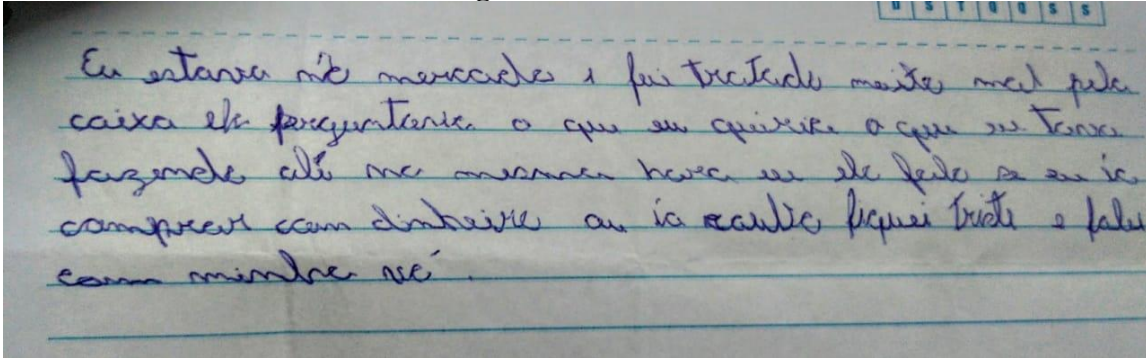 D S T Q Q S S
Eu estava no mercado e fui tratado muito mal pela
caixa ela perguntava o que eu queria o que eu tava
fazendo ali na mesma hora eu ela falo se eu ia
comprar com dinheiro ou ia fiquei triste e falei
com minha vó.